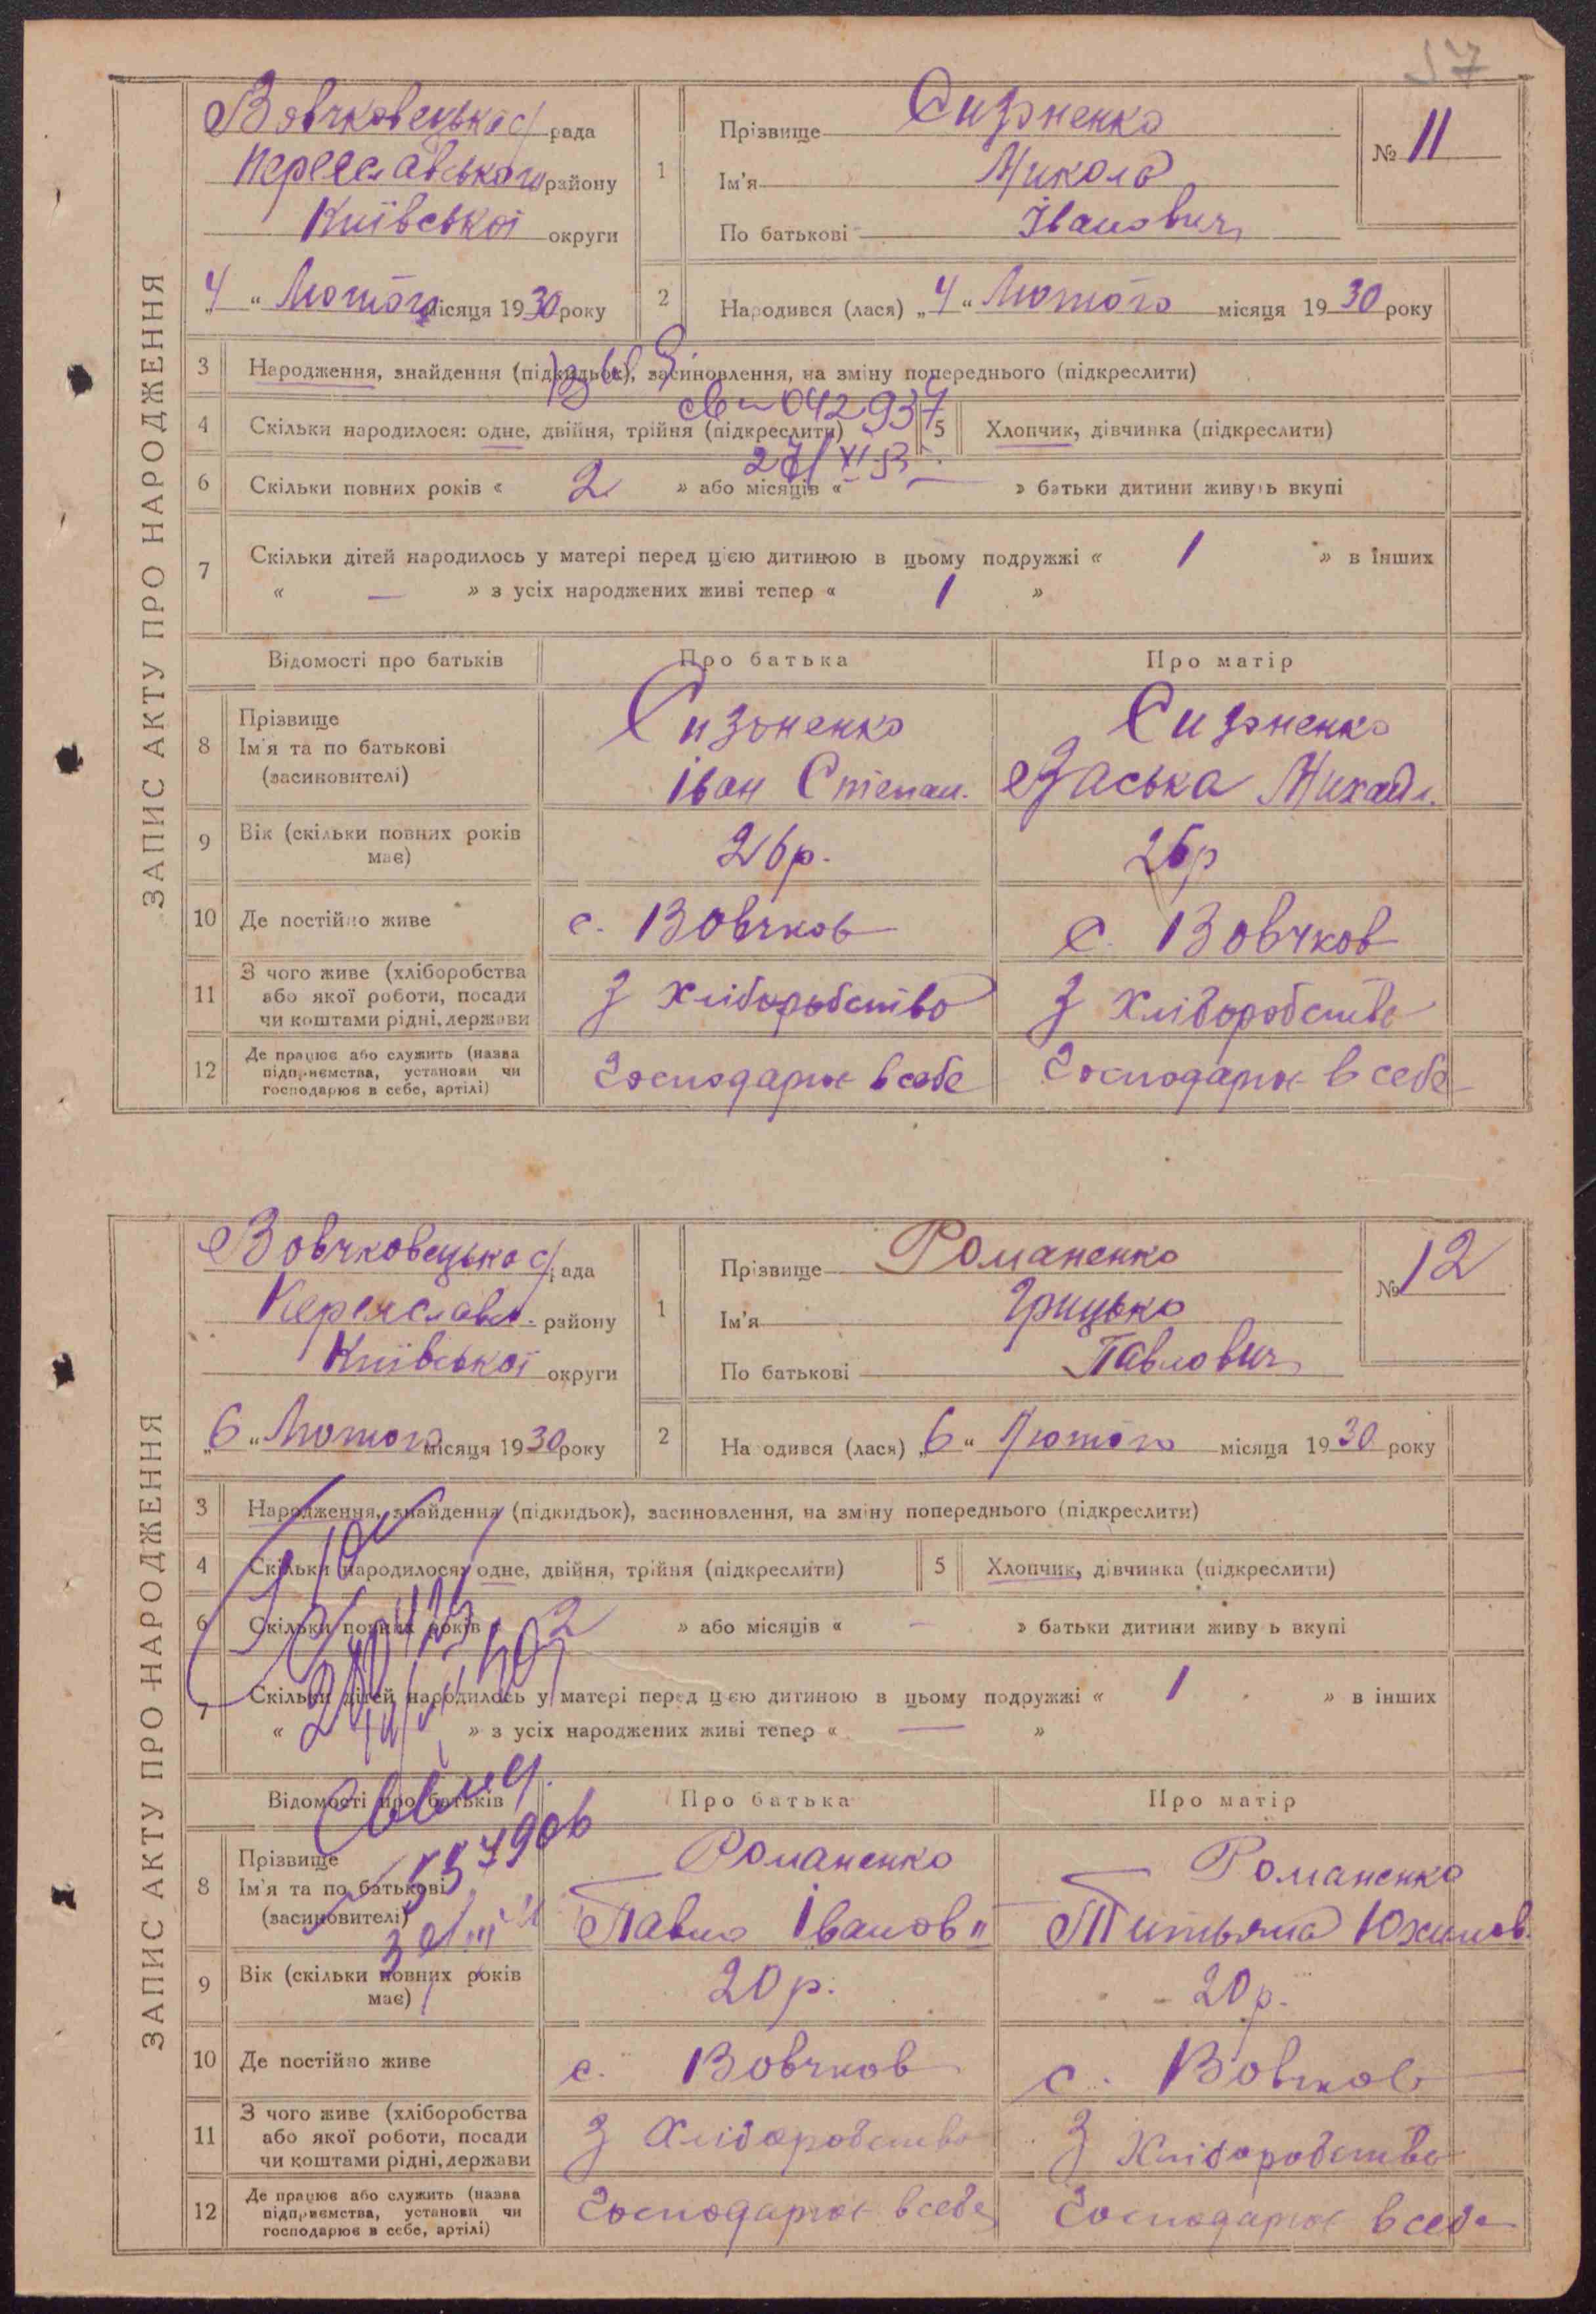 37
ЗАПИС АКТУ ПРО НАРОДЖЕННЯ
Вовчковецька с/рада
Переяславського району
Київської округи
"4" Лютого місяця 1930 року
1
Прізвище Сизоненко
Ім'я Микола
По батькові Іванович
№ 11
2 Народився (лася) „4“ Лютого місяця 1930 року
3 Народження, знайдення (підкидьок), засиновлення, на зміну попереднього (підкреслити)
4 Скільки народилося: одне, двійня, трійня (підкреслити)
5 Хлопчик, дівчинка (підкреслити)
042937
6 Скільки повних років « 2 » або місяців « — » батьки дитини живуть вкупі
7 Скільки дітей народилось у матері перед цією дитиною в цьому подружжі « 1 » в інших
« — » з усіх народжених живі тепер « 1 »
Відомості про батьків Про батька Про матір
8 Прізвище
Ім'я та по батькові
(засиновителі)
Сизоненко
Іван Степан.
Сизоненко
Васька Михайл.
9 Вік (скільки повних років має) 26р. 26р
10 Де постійно живе с. Вовчков с. Вовчков
11 З чого живе (хліборобства
або якої роботи, посади
чи коштами рідні, держави
З Хліборобства З Хліборобства
12 Де працює або служить (назва
підприємства, установи чи
господарює в себе, артілі)
Господарює в себе Господарює в себе
ЗАПИС АКТУ ПРО НАРОДЖЕННЯ
Вовчковецька с/рада
Переяславс. району
Київської округи
„6“ Лютого місяця 1930 року
1
Прізвище Романенко
Ім'я Грицько
По батькові Павлович
№ 12
2 Народився (лася) „6“ Лютого місяця 1930 року
3 Народження, знайдення (підкидьок), засиновлення, на зміну попереднього (підкреслити)
4 Скільки народилося: одне, двійня, трійня (підкреслити)
5 Хлопчик, дівчинка (підкреслити)
6 Скільки повних років « 2 » або місяців « — » батьки дитини живуть вкупі
7 Скільки дітей народилось у матері перед цією дитиною в цьому подружжі « 1 » в інших
« » з усіх народжених живі тепер « — »
Відомості про батьків Про батька Про матір
8 Прізвище
Ім'я та по батькові
(засиновителі)
Романенко
Павло Іванов
Романенко
Титьяна Юхимов.
9 Вік (скільки повних років має) 20р. 20р.
10 Де постійно живе с. Вовчков с. Вовчков
11 З чого живе (хліборобства
або якої роботи, посади
чи коштами рідні, держави
З Хліборобства З Хліборобства
12 Де працює або служить (назва
підприємства, установи чи
господарює в себе, артілі)
Господарює в себе Господарює в себе